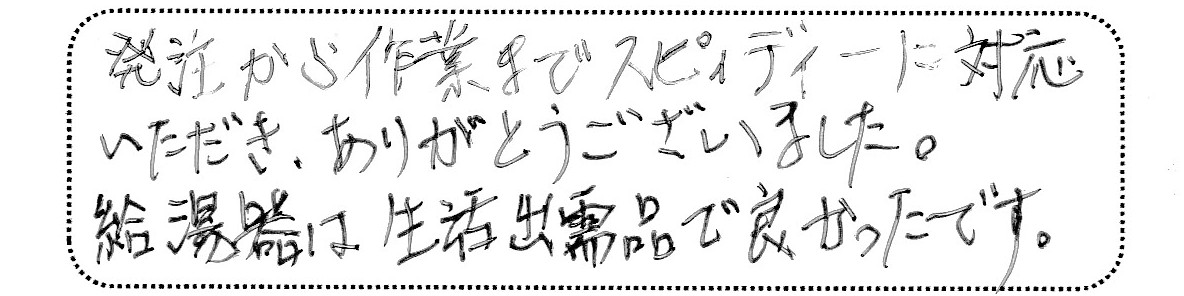 発注から作業までスピィディーに対応
いただき、ありがとうございました。
給湯器は生活出需品で良かったです。